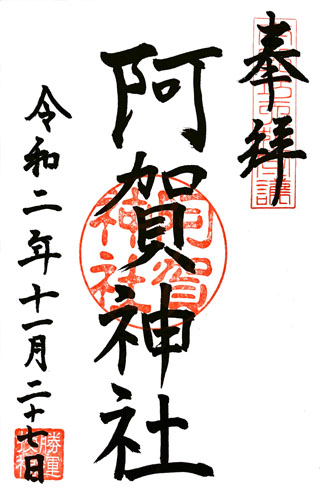 奉拝
阿賀神社
阿賀神社
令和二年十一月二十七日
勝運